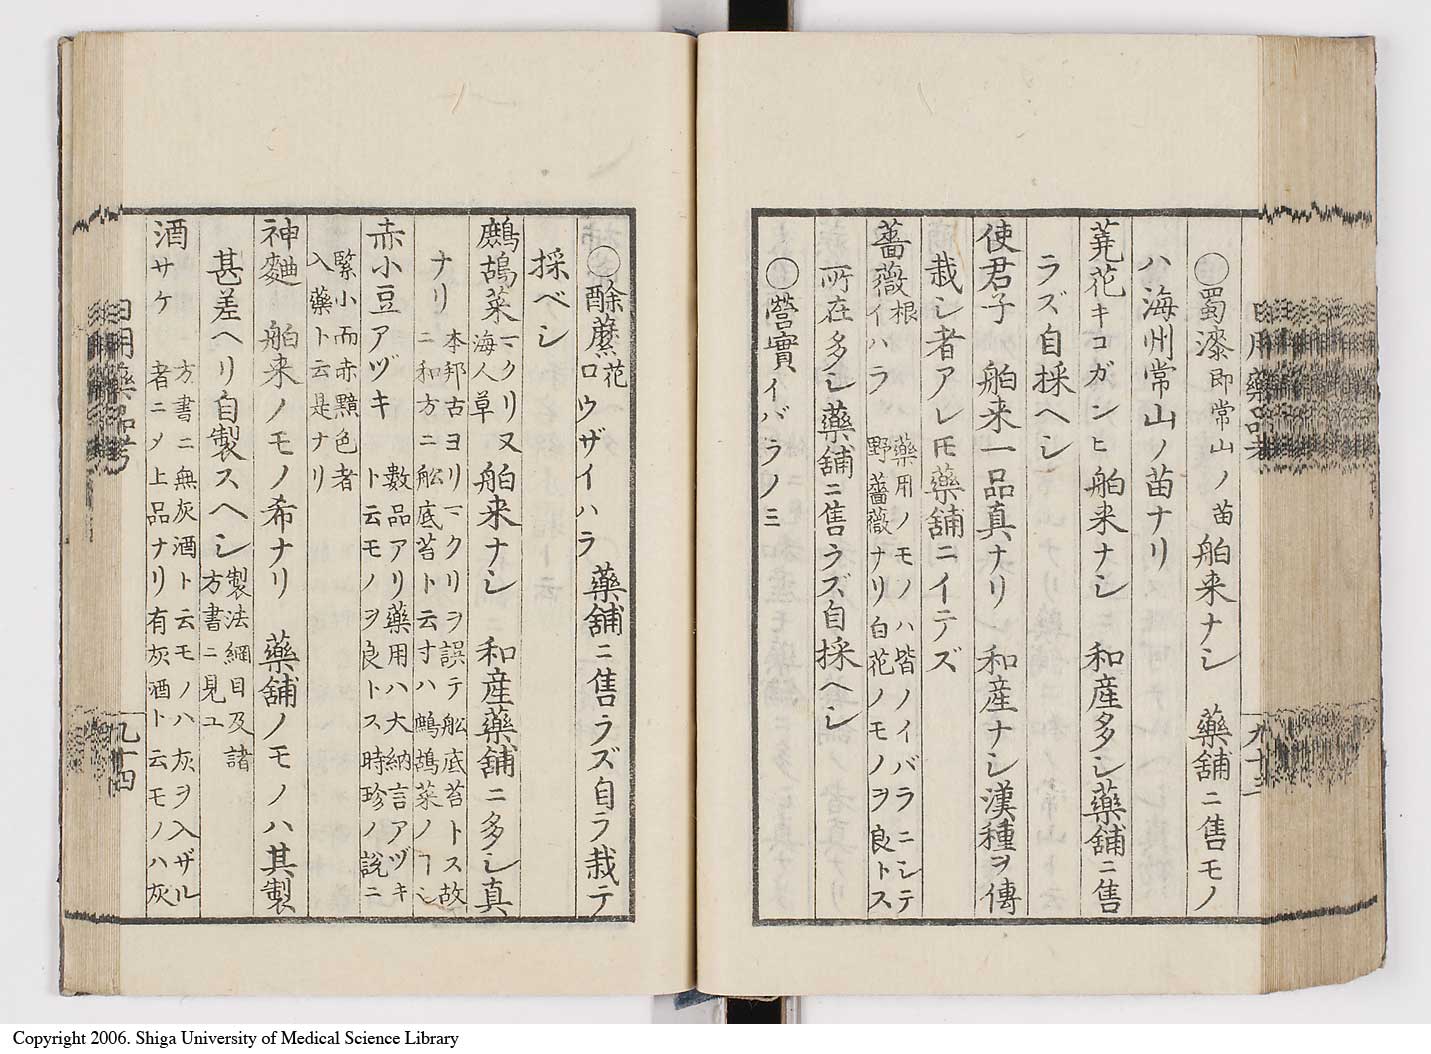 日用藥品考
〇蜀漆即常山ノ苗 舶来ナシ 藥舗ニ售モノ
ハ海州常山ノ苗ナリ
蕘花キコガンヒ 舶来ナシ 和産多シ藥舗ニ售
ラズ自採ヘシ
使君子 舶来一品真ナリ 和産ナシ漢種ヲ傳
栽シ者アレ𪜈藥舗ニイテズ
薔薇根イハラ 藥用ノモノハ皆ノイバラニシテ
野薔薇ナリ白花ノモノヲ良トス
所在多シ藥舗ニ售ラズ自採ヘシ
〇營實イバラノミ
〇酴蘪花ロウザイハラ 藥舗ニ售ラズ自ラ栽テ
採ベシ
鷓鴣菜マクリ又海人草 舶来ナシ 和産藥舗ニ多シ真
ナリ 本邦古ヨリマクリヲ誤テ舩底苔トス故
ニ和方ニ舩底苔ト云寸ハ鷓鴣菜ノヿシ
赤小豆アヅキ 數品アリ藥用ハ大納言アヅキ
ト云モノヲ良トス時珍ノ說ニ
緊小而赤黯色者
入藥ト云是ナリ
神麯 舶来ノモノ希ナリ 藥舗ノモノハ其製
甚差ヘリ自製スヘシ 製法綱目及諸
方書ニ見ユ
酒サケ 方書ニ無灰酒ト云モノハ灰ヲ入ザル
者ニメ上品ナリ有灰酒ト云モノハ灰
日用藥品考
九十四
Copyright 2006. Shiga University of Medical Science Library